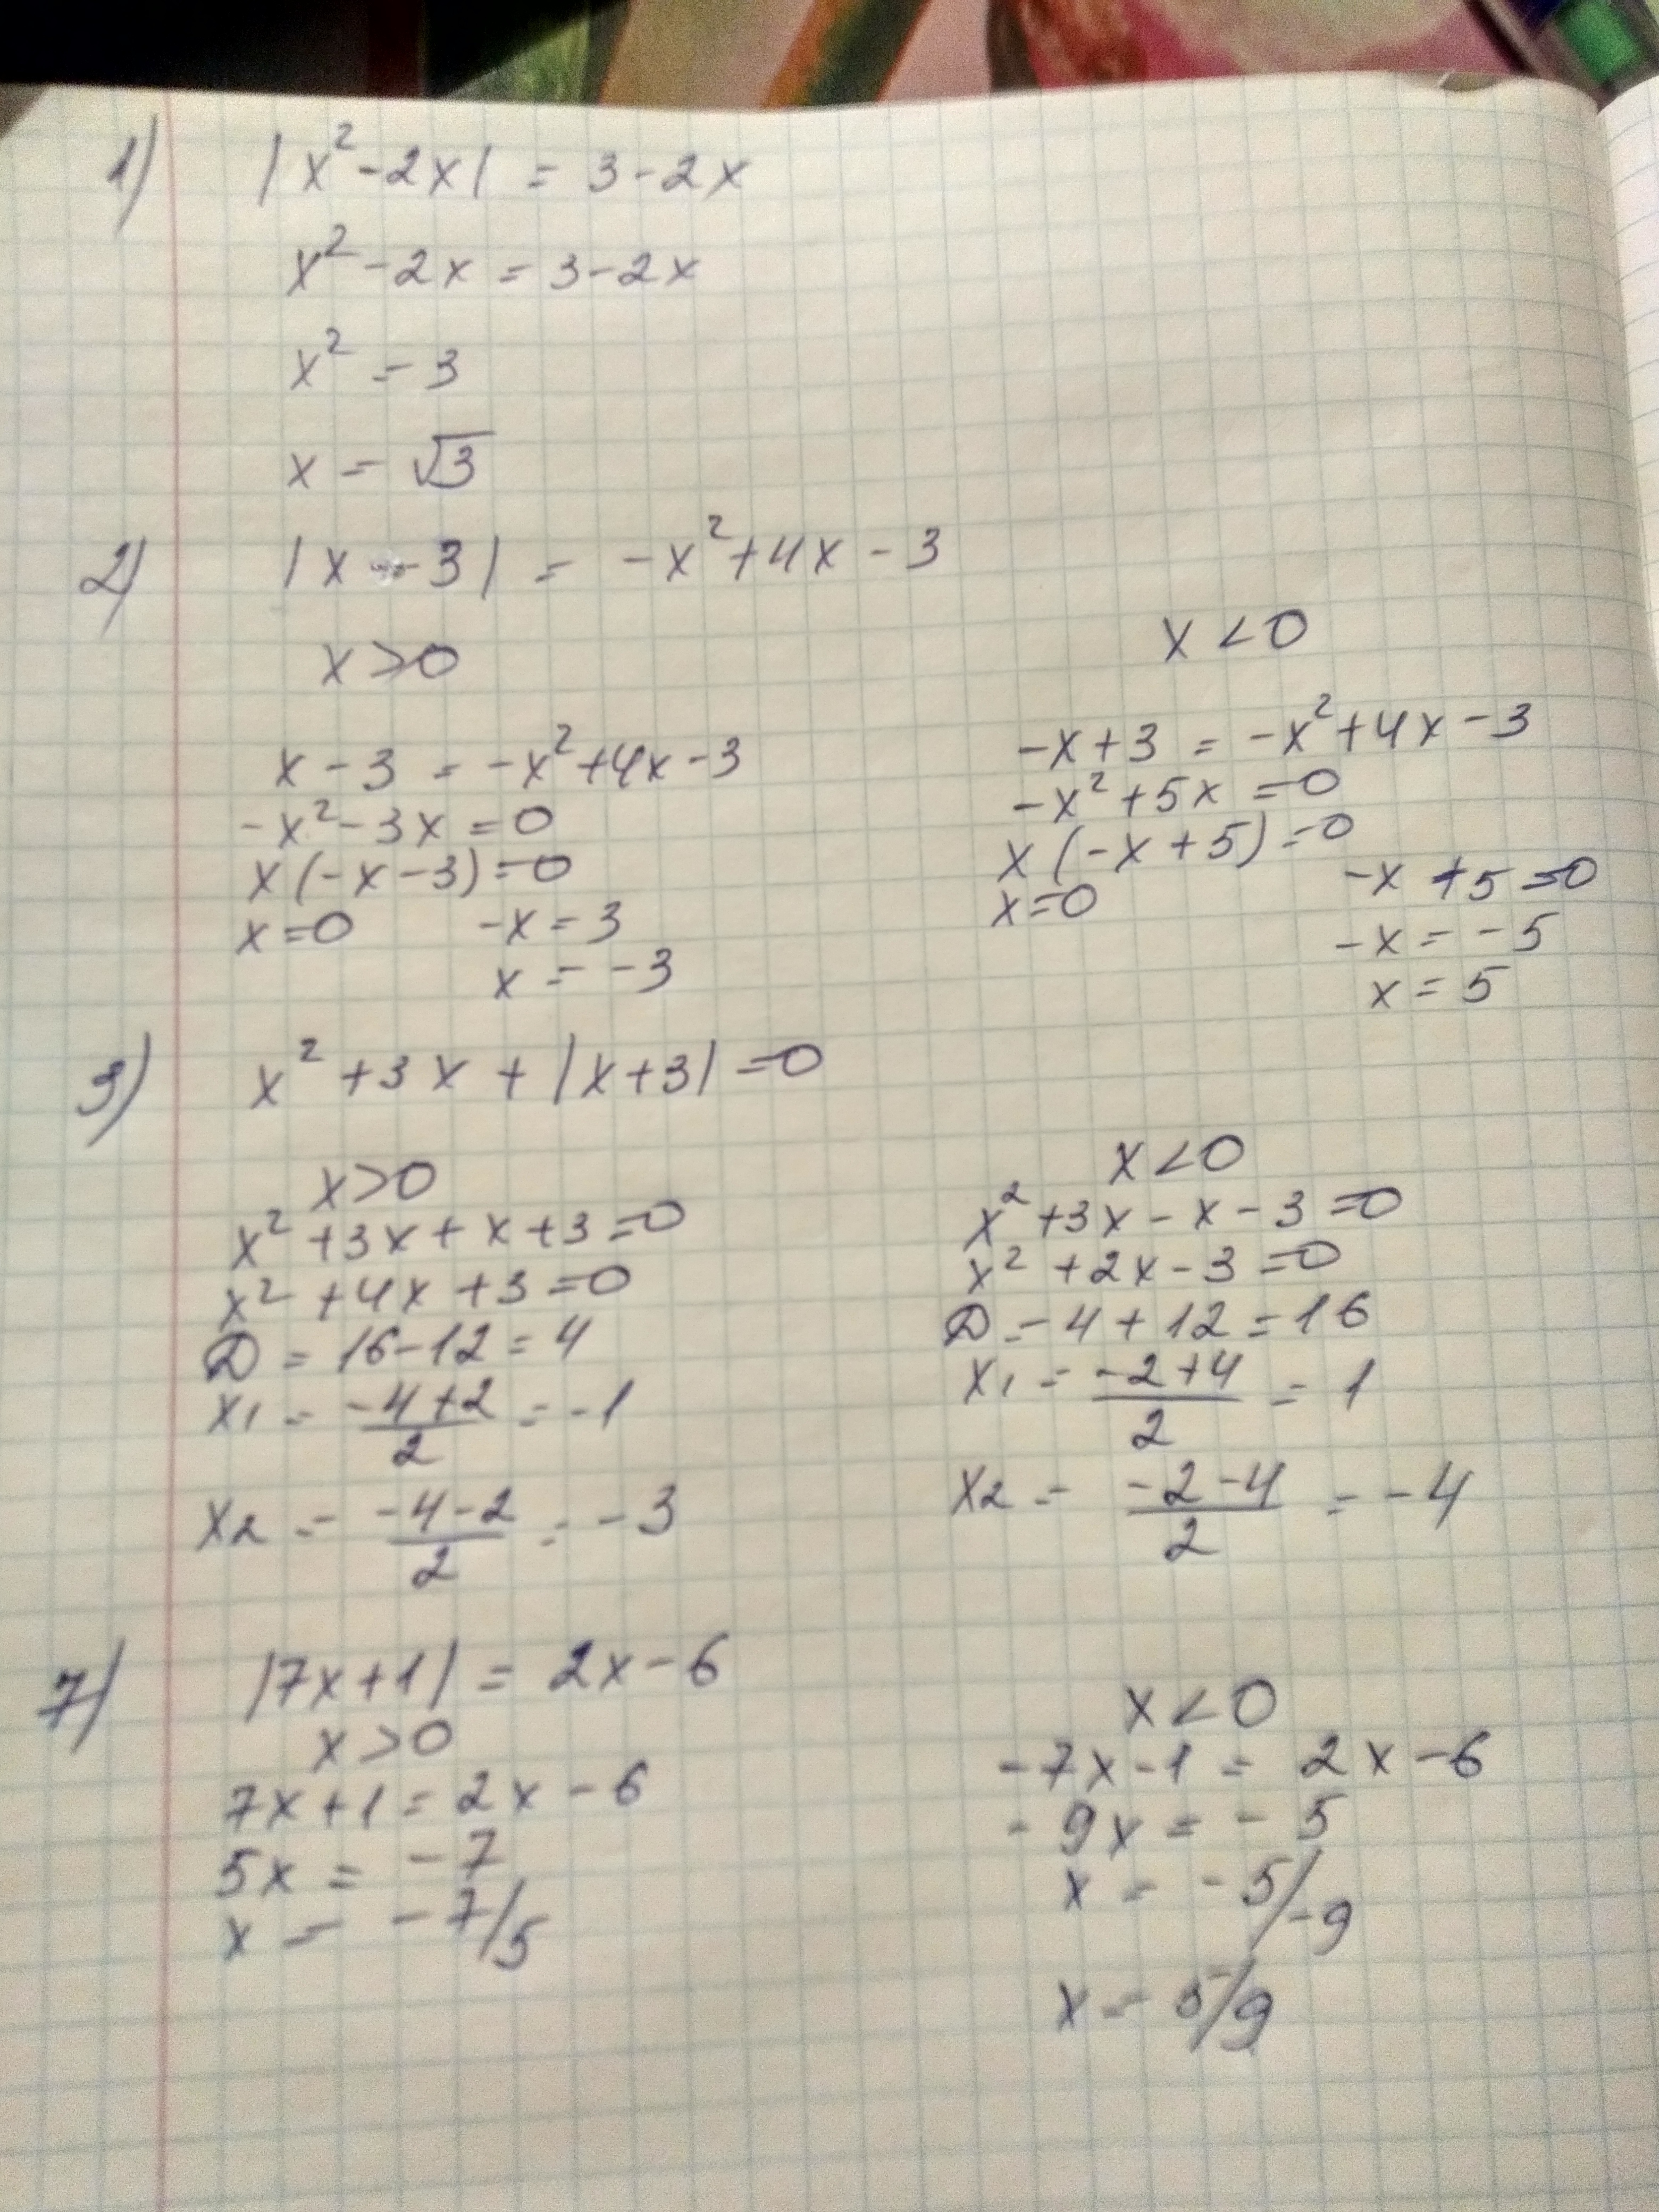 1) |x² - 2x| = 3 - 2x
x² - 2x = 3 - 2x
x² = 3
x = √3
2) |x - 3| = -x² + 4x - 3
x > 0
x - 3 = -x² + 4x - 3
-x² - 3x = 0
x(-x - 3) = 0
x = 0 -x = 3
x = -3
x < 0
-x + 3 = -x² + 4x - 3
-x² + 5x = 0
x(-x + 5) = 0
x = 0 -x + 5 = 0
-x = -5
x = 5
3) x² + 3x + |x + 3| = 0
x > 0
x² + 3x + x + 3 = 0
x² + 4x + 3 = 0
D = 16 - 12 = 4
x1 = (-4 + 2)/2 = -1
x2 = (-4 - 2)/2 = -3
x < 0
x² + 3x - x - 3 = 0
x² + 2x - 3 = 0
D = 4 + 12 = 16
x1 = (-2 + 4)/2 = 1
x2 = (-2 - 4)/2 = -4
7) |7x + 1| = 2x - 6
x > 0
7x + 1 = 2x - 6
5x = -7
x = -7/5
x < 0
-7x - 1 = 2x - 6
-9x = -5
x = -5/-9
x = 5/9